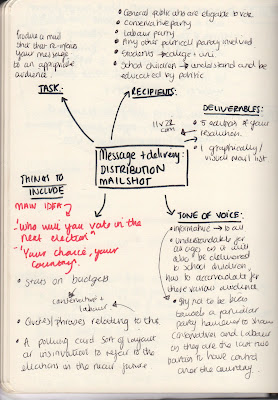 Produce a mail
shot that targets
your message
to an appropriate
audience
TASK:
• General public who are eligible to vote
• Conservative party
• Labour party
• Any other political party involved
• Students → college + uni
• School children → understand and be
educated by politics
RECIPIENTS:
DELIVERABLES:
• 5 editions of your
resolution.
• 1 graphically/
visual mail list
Message + delivery:
DISTRIBUTION
MAILSHOT
THINGS TO
INCLUDE
MAIN IDEA
"Who will you vote in the
next election"
"Your choice, your
country."
• Stats on budgets
conservative +
labour
• Quotes/phrases relating to this
• A polling card sort of layout
or insinuation to refer to the
elections in the near future
TONE OF VOICE:
• Informative → to all
• Understandable for
all ages as it will
also be delivered
to school children,
has to accommodate for
these various audiences.
• Try not to be bias
towards a particular
party however to show
Conservatives and Labour
as they are the last two
parties to have control
over the country.